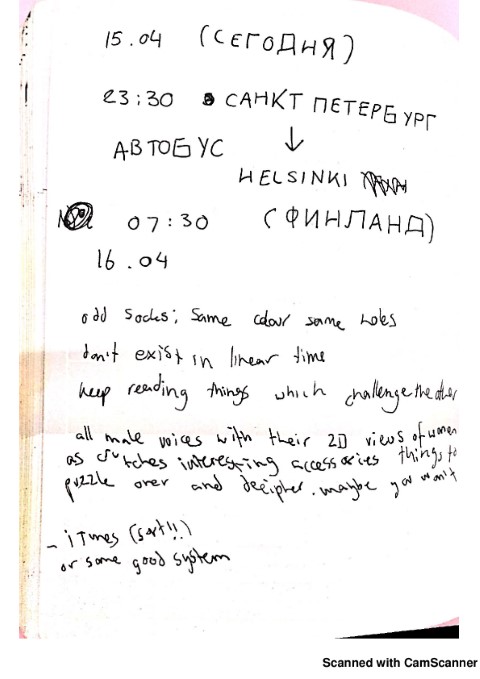 15.04 (СЕГОДНЯ)
23:30 САНКТ ПЕТЕРБУРГ
АВТОБУС ↓
HELSINKI
07:30 (ФИНЛАНД)
16.04
odd socks; same colour same holes
don't exist in linear time
keep reading things which challenge the other
all male voices with their 2D views of women
as crutches interesting accessories things to
puzzle over and decipher. maybe you won't
- iTunes (sort!!)
or some good system
Scanned with CamScanner